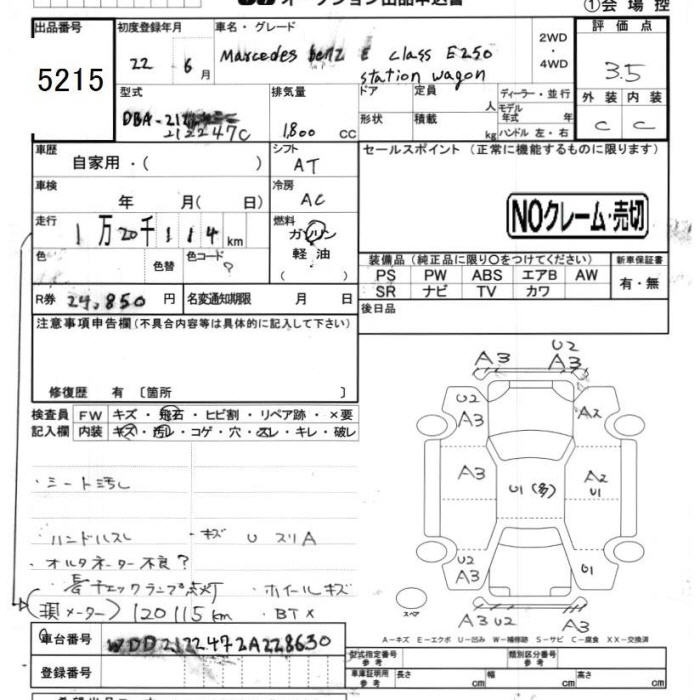 オークション出品申込書
①会場控
出品番号
5215
初度登録年月
22 6月
車名・グレード
Marcedes benz E class E250
station wagon
2WD
・
4WD
評価点
3.5
外装 内装
C C
型式
DBA-212
212247C
排気量
1,800 cc
ドア
形状
定員
人
積載
kg
ディーラー・並行
モデル
年式 年
ハンドル 左・右
車歴
自家用・( )
シフト
AT
セールスポイント (正常に機能するものに限ります)
車検
年 月( 日)
冷房
AC
NOクレーム・売切
走行
1万20千114km
燃料
ガソリン
軽油
( )
色
色替
色コード
?
装備品(純正品に限り〇をつけてください)
PS PW ABS エアB AW
SR ナビ TV カワ
新車保証書
有・無
R券 24,850円
名変通知期限 月 日
後日品
注意事項申告欄(不具合内容等は具体的に記入して下さい)
修復歴 有 〔箇所 〕
検査員
記入欄
FW キズ・飛石・ヒビ割・リペア跡・×要
内装 キズ・汚レ・コゲ・穴・スレ・キレ・破レ
・シート汚し
ハンドルスレ ・キズ U スリA
・オルタネーター不良?
・チェックランプ点灯 ・ホイールキズ
(現メーター) 120115km ・BT×
U2
A3 A3
U2
A3 A2
A3 U1(多) A2
U1
U2
A3 U1
A3 U2 A3
スペア
A-キズ E-エクボ U-凹み W-補修跡 S-サビ C-腐食 XX-交換済
車台番号 WDD2122472A228630
登録番号
型式指定番号
参考
類別区分番号
参考
車庫証明用
参考
長さ cm 幅 cm 高さ cm